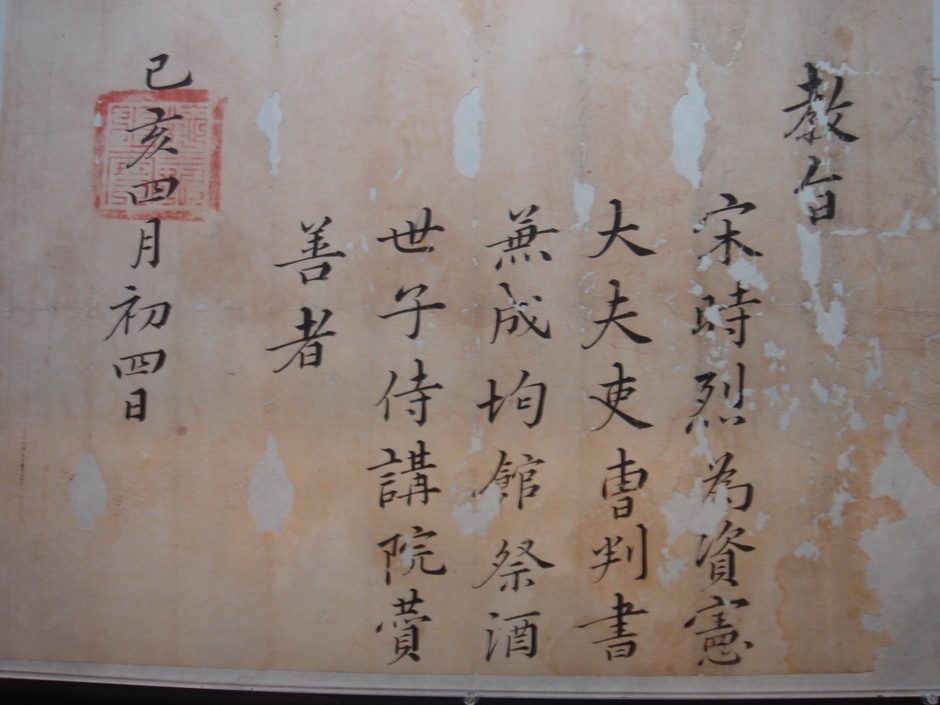 教旨
宋時烈為資憲
大夫吏曺判書
兼成均館祭酒
世子侍講院賛
善者
己亥四月初四日